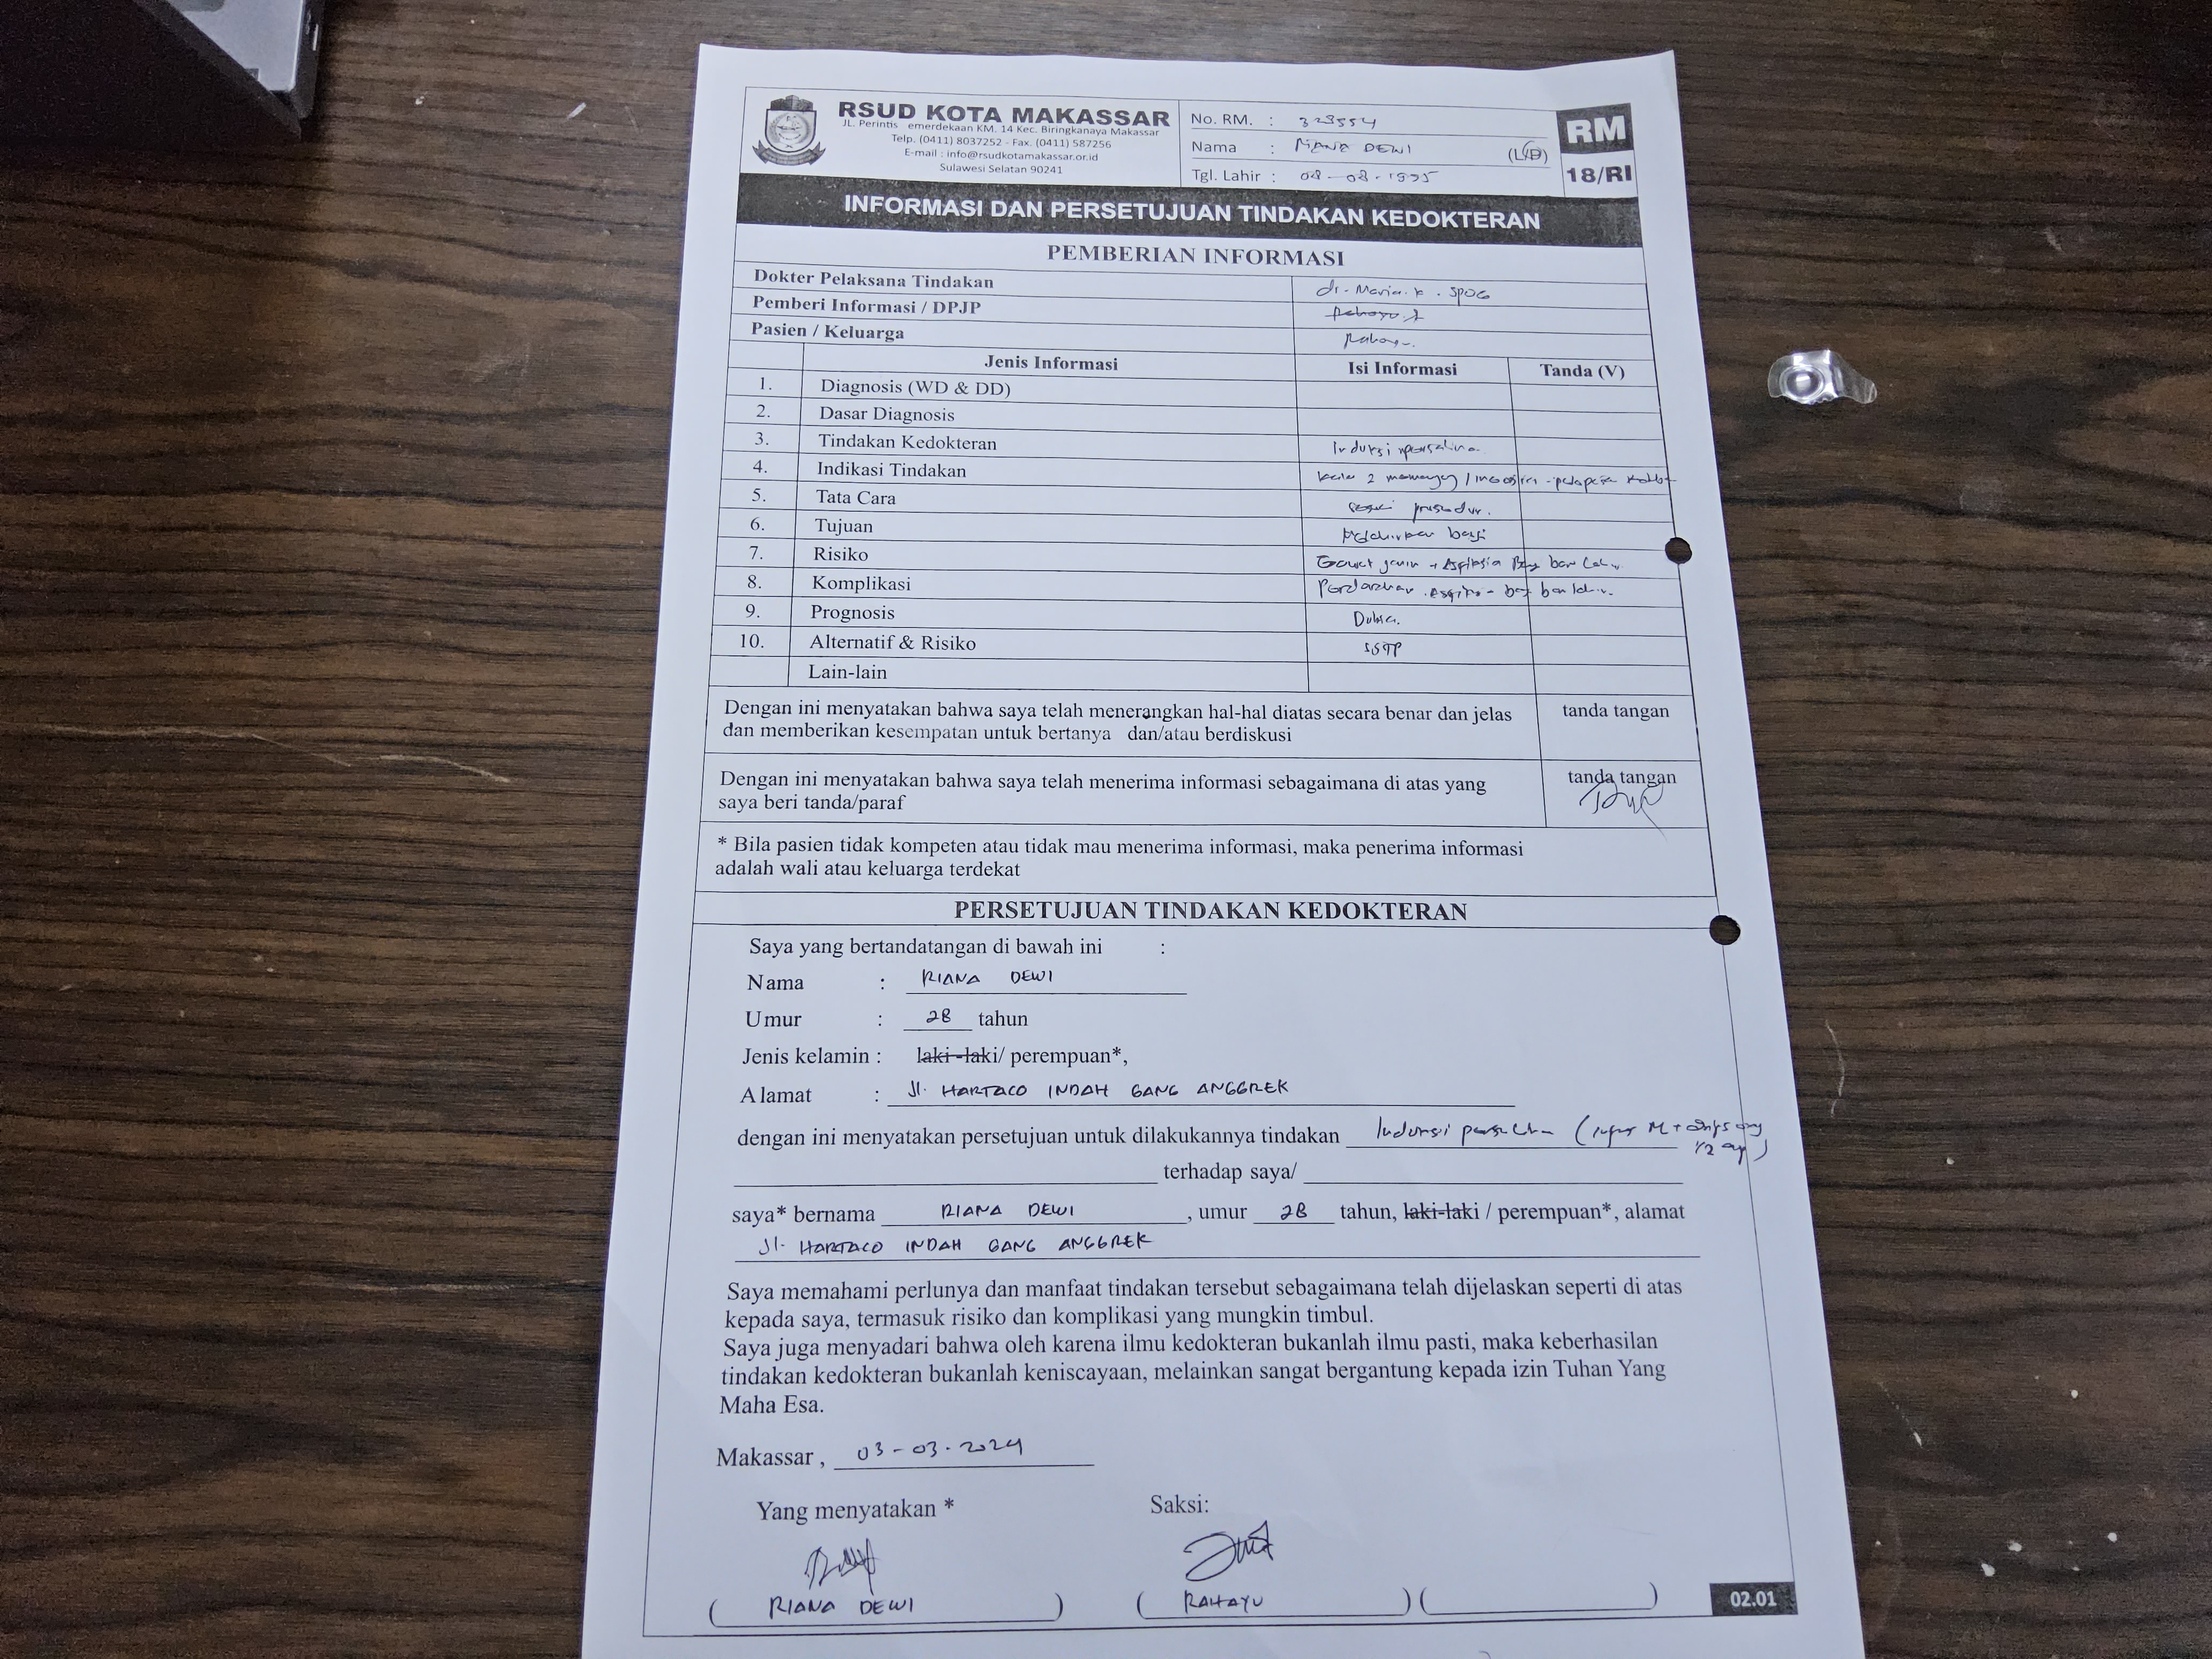 RSUD KOTA MAKASSAR
JL. Perintis emerdekaan KM. 14 Kec. Biringkanaya Makassar
Telp. (0411) 8037252 - Fax. (0411) 587256
E-mail : info@rsudkotamakassar.or.id
Sulawesi Selatan 90241
No. RM. :
Nama : RIANA DEWI (L/P)
Tgl. Lahir : 08-08-1995
RM
18/RI
INFORMASI DAN PERSETUJUAN TINDAKAN KEDOKTERAN
PEMBERIAN INFORMASI
Dokter Pelaksana Tindakan dr. Maria. K. SPOG
Pemberi Informasi / DPJP
Pasien / Keluarga
Jenis Informasi Isi Informasi Tanda (V)
1. Diagnosis (WD & DD)
2. Dasar Diagnosis
3. Tindakan Kedokteran Induksi
4. Indikasi Tindakan kala 2
5. Tata Cara prosedur.
6. Tujuan bayi
7. Risiko Gawat janin + Asfiksia
8. Komplikasi Perdarahan
9. Prognosis Dubia.
10. Alternatif & Risiko
Lain-lain
Dengan ini menyatakan bahwa saya telah menerangkan hal-hal diatas secara benar dan jelas tanda tangan
dan memberikan kesempatan untuk bertanya dan/atau berdiskusi
Dengan ini menyatakan bahwa saya telah menerima informasi sebagaimana di atas yang tanda tangan
saya beri tanda/paraf
* Bila pasien tidak kompeten atau tidak mau menerima informasi, maka penerima informasi
adalah wali atau keluarga terdekat
PERSETUJUAN TINDAKAN KEDOKTERAN
Saya yang bertandatangan di bawah ini :
Nama : RIANA DEWI
Umur : 28 tahun
Jenis kelamin : laki-laki/ perempuan*,
Alamat : Jl. HARTACO INDAH GANG ANGGREK
dengan ini menyatakan persetujuan untuk dilakukannya tindakan Induksi
terhadap saya/
saya* bernama RIANA DEWI, umur 28 tahun, laki-laki / perempuan*, alamat
Jl. HARTACO INDAH GANG ANGGREK
Saya memahami perlunya dan manfaat tindakan tersebut sebagaimana telah dijelaskan seperti di atas
kepada saya, termasuk risiko dan komplikasi yang mungkin timbul.
Saya juga menyadari bahwa oleh karena ilmu kedokteran bukanlah ilmu pasti, maka keberhasilan
tindakan kedokteran bukanlah keniscayaan, melainkan sangat bergantung kepada izin Tuhan Yang
Maha Esa.
Makassar , 03-03-2024
Yang menyatakan * Saksi:
( RIANA DEWI ) ( RAHAYU ) ( )
02.01